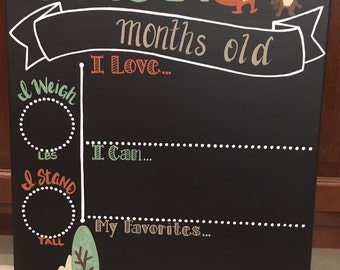 months old
I Love...
I Weigh
LBS
I Can...
I STAND
TALL
My Favorites...